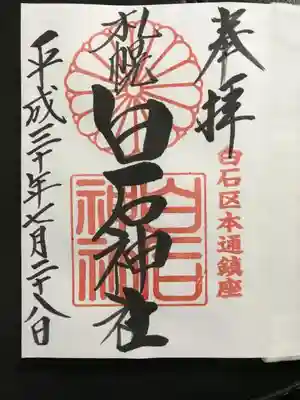 奉拝
白石区本通鎮座
札幌
白石神社
白石神社
平成三十年七月二十八日